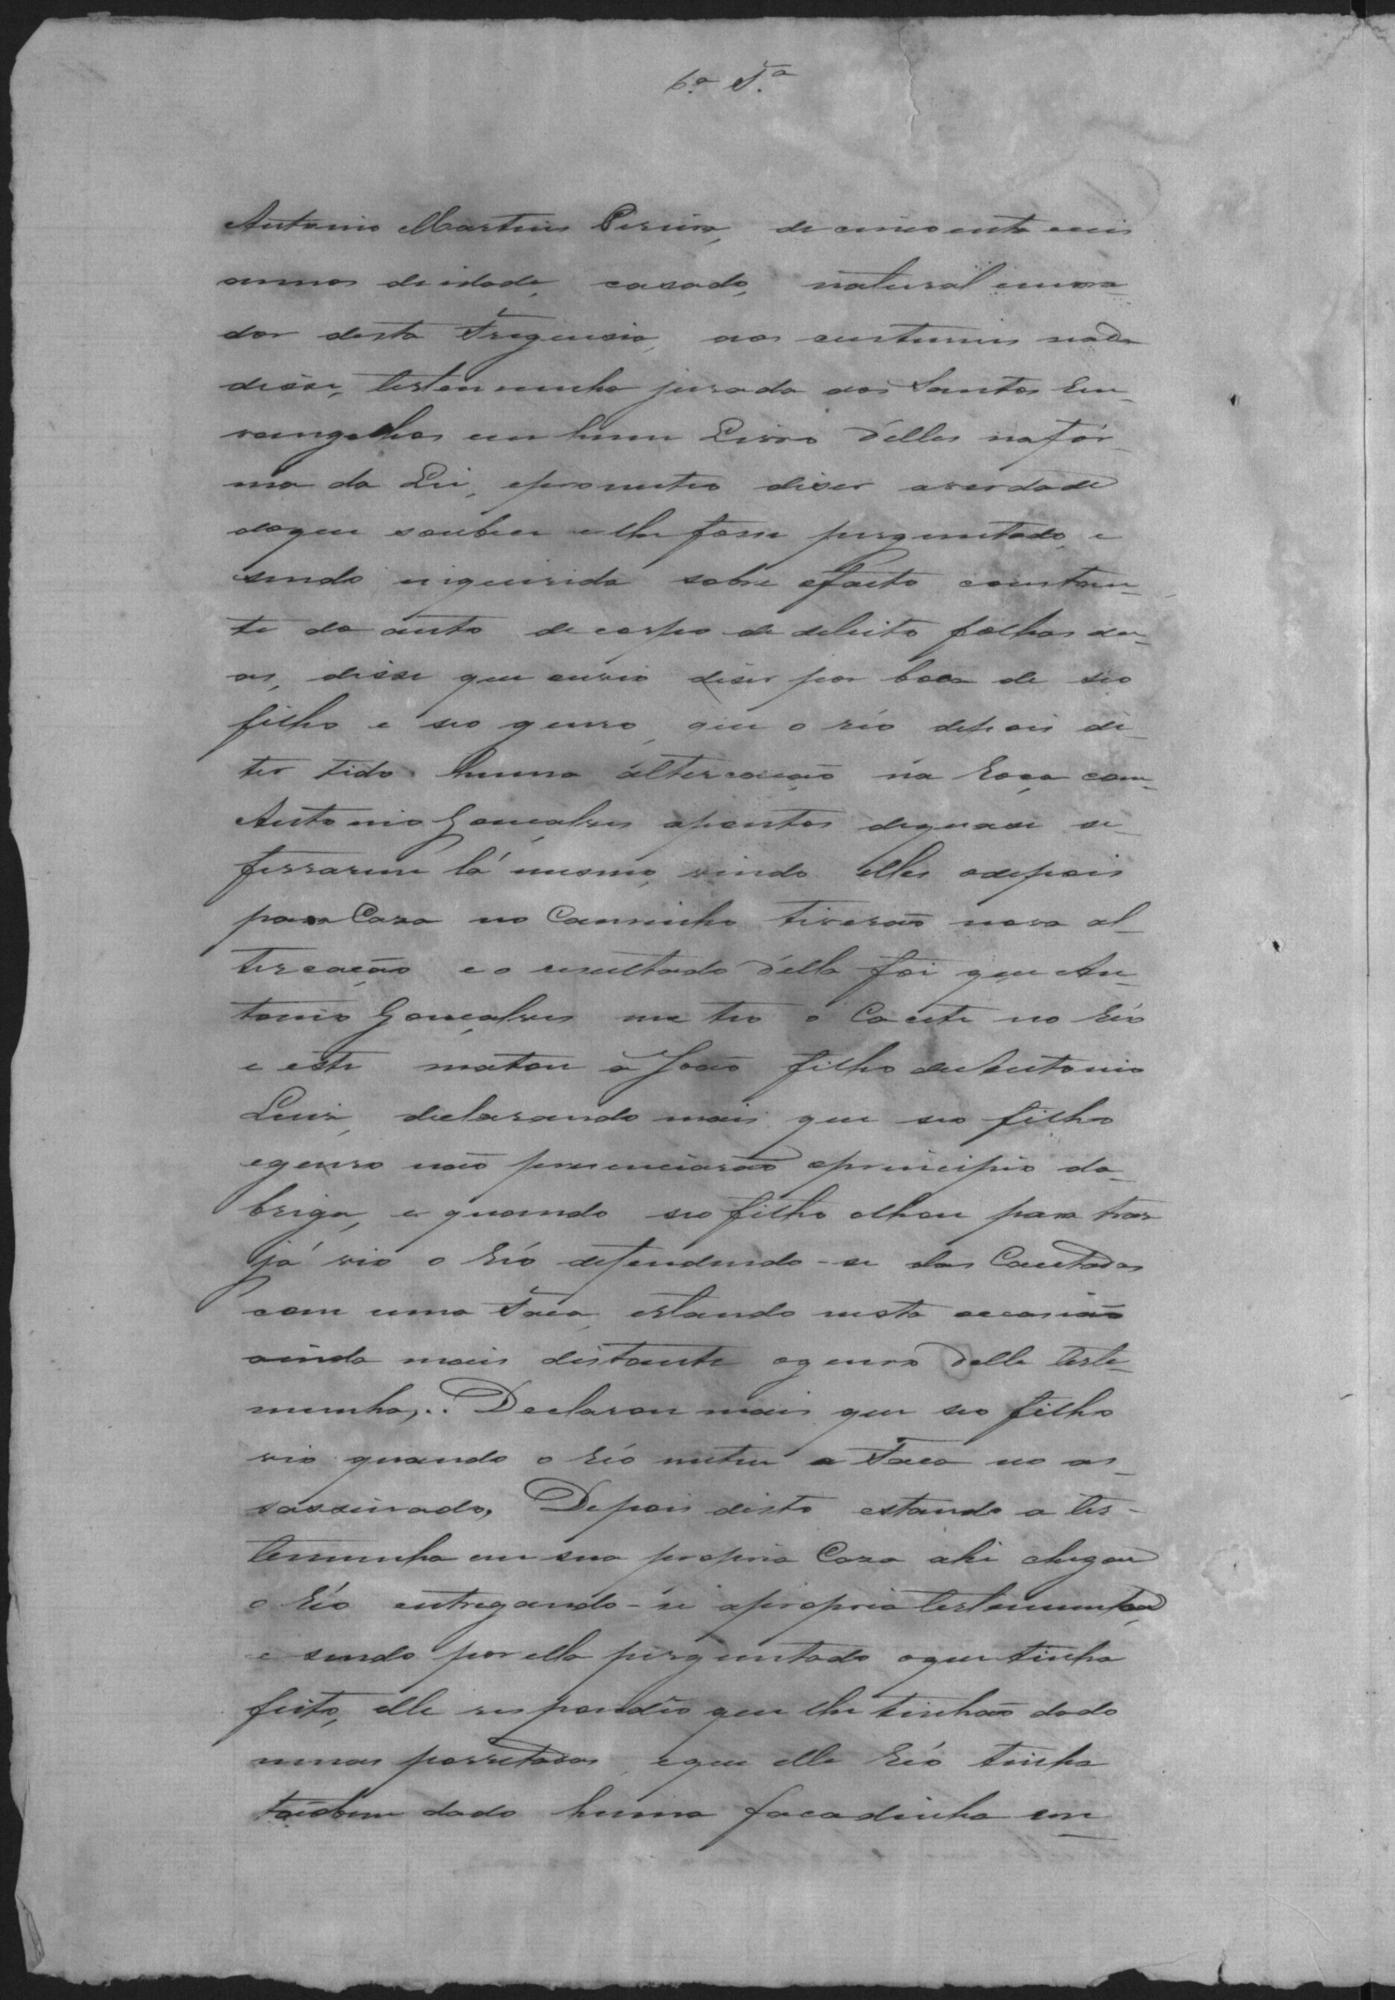 6.a T.a
Antonio Martins Pereira, de cincoenta e seis
annos de idade, casado, natural e mora-
dor desta Freguesia, aos custumes nada
disse, testemunha jurada aos Santos Eu-
vangelhos em hum Livro d'elles na fór-
ma da Lei, e prometeo diser a verdade
do que soubese e lhe fosse perguntado, e
sendo inquerida sobre o facto constan-
te do auto de corpo de delicto folhas du-
as, disse que ouvio diser por boca de seo
filho e seo genro, que o réo depois de
ter tido huma altercação na Roça com
Antonio Gonçalves apontos de quase se
ferrarem lá mesmo, vindo elles adepois
para Caza no Caminho tiverão nova al-
tercação e o resultado d'ella foi que An-
tonio Gonçalves meteo o Cacete no Réo
e este matou a João filho de Antonio
Luiz, declarando mais que seo filho
e genro não presenciarão o principio da
briga, e quando seo filho olhou para traz
já vio o Réo defendendo-se das Cacetadas
com uma Faca, estando nesta occasião
ainda mais distante o genro delle teste-
munha,.. Declarou mais que seo filho
vio quando o Réo meteu a Faca no as-
sassinado, Depois disto estando a tes-
temunha em sua propria Caza ahi chegou
o Réo entregando-se a propria testemunha,
e sendo por ella perguntado o que tinha
feito, elle respondêo que lhe tinhão dado
umas porretadas, e que elle Réo tinha
taobem dado huma facadinha em